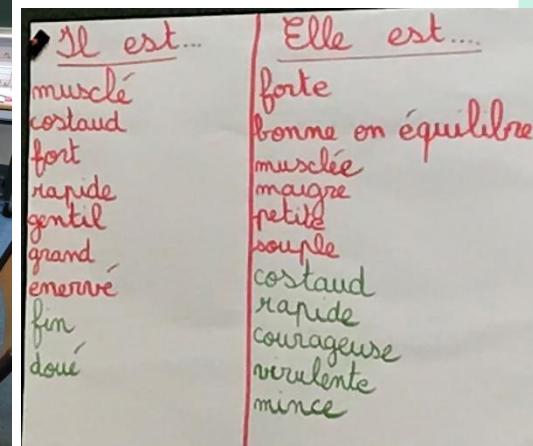 Il est...
musclé
costaud
fort
rapide
gentil
grand
enervé
fin
doué
Elle est....
forte
bonne en équilibre
musclée
maigre
petite
souple
costaud
rapide
courageuse
virulente
mince